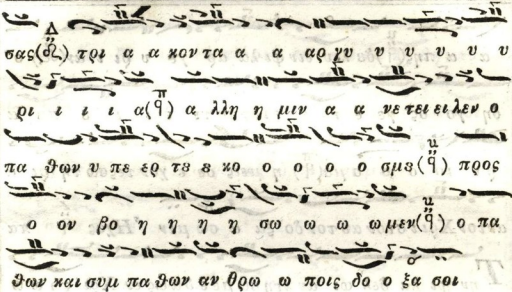 σας(Δ) τρι α α κον τα α α αρ γυ υ υ υ υ υ
ρι ι ι ι α(π) α λλη η μιν α α νε τει ει λεν ο
πα θων υ πε ερ τε ε κο ο ο ο ο σμε(q) προς
ο ον βο η η η η σω ω ω ω μεν(q) ο πα
θων και συμ πα θων αν θρω ω ποις δο ο ξα σοι